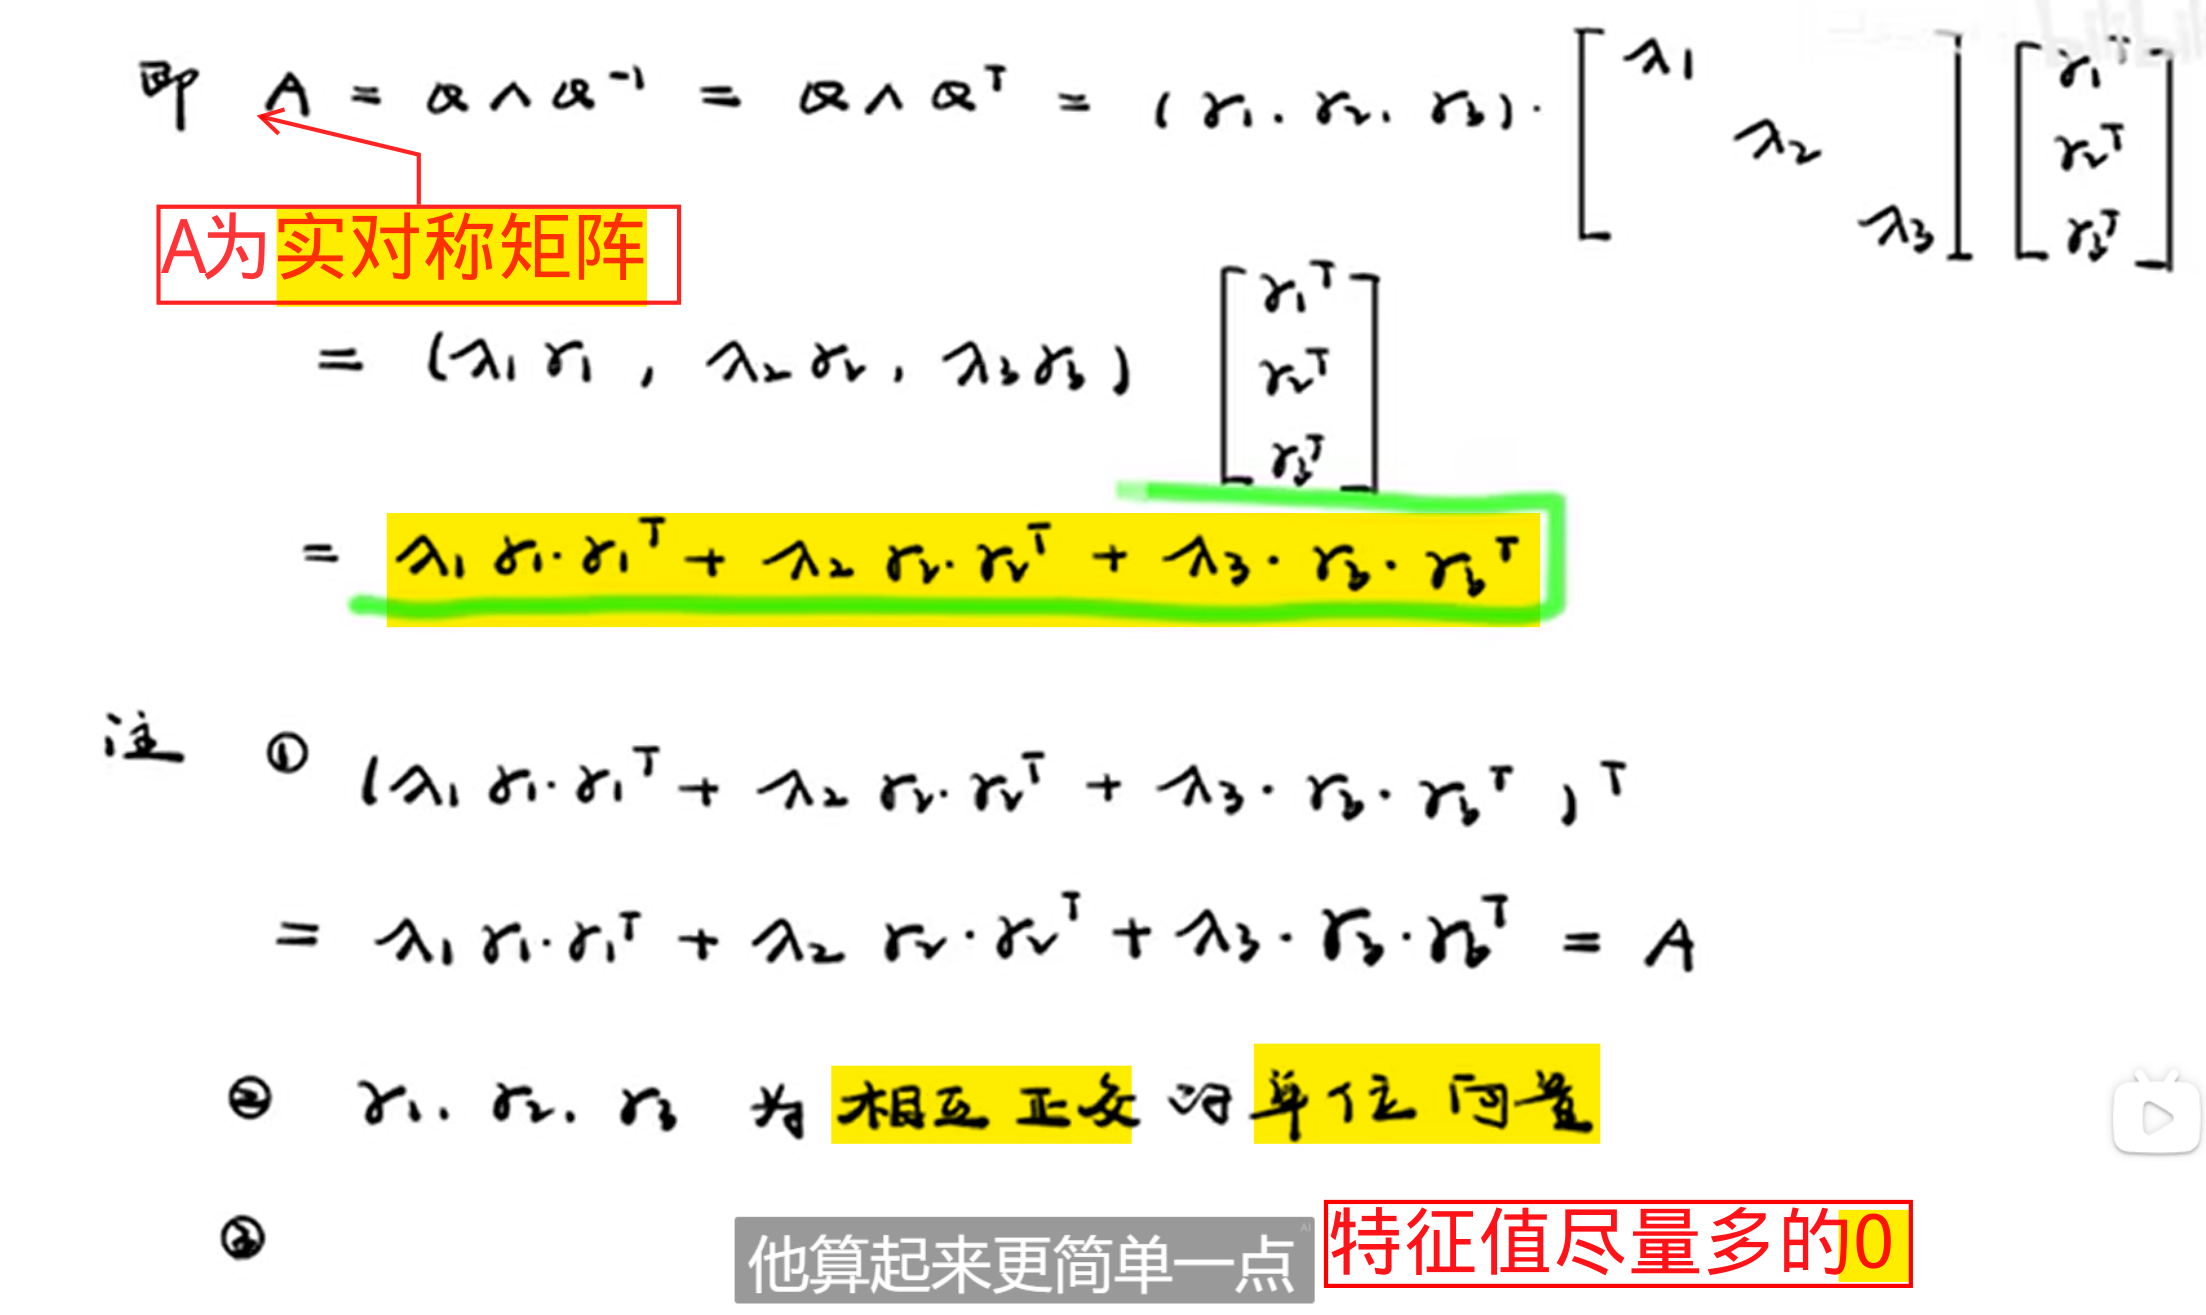 即 A = Q Λ Q⁻¹ = Q Λ Qᵀ = (γ₁, γ₂, γ₃) · [λ₁ λ₂ λ₃] [γ₁ᵀ γ₂ᵀ γ₃ᵀ]
A为实对称矩阵
= (λ₁γ₁, λ₂γ₂, λ₃γ₃) [γ₁ᵀ γ₂ᵀ γ₃ᵀ]
= λ₁γ₁·γ₁ᵀ + λ₂γ₂·γ₂ᵀ + λ₃·γ₃·γ₃ᵀ
注 ① (λ₁γ₁·γ₁ᵀ + λ₂γ₂·γ₂ᵀ + λ₃·γ₃·γ₃ᵀ)ᵀ
= λ₁γ₁·γ₁ᵀ + λ₂γ₂·γ₂ᵀ + λ₃·γ₃·γ₃ᵀ = A
② γ₁, γ₂, γ₃ 为相互正交的单位向量
③
他算起来更简单一点
特征值尽量多的0